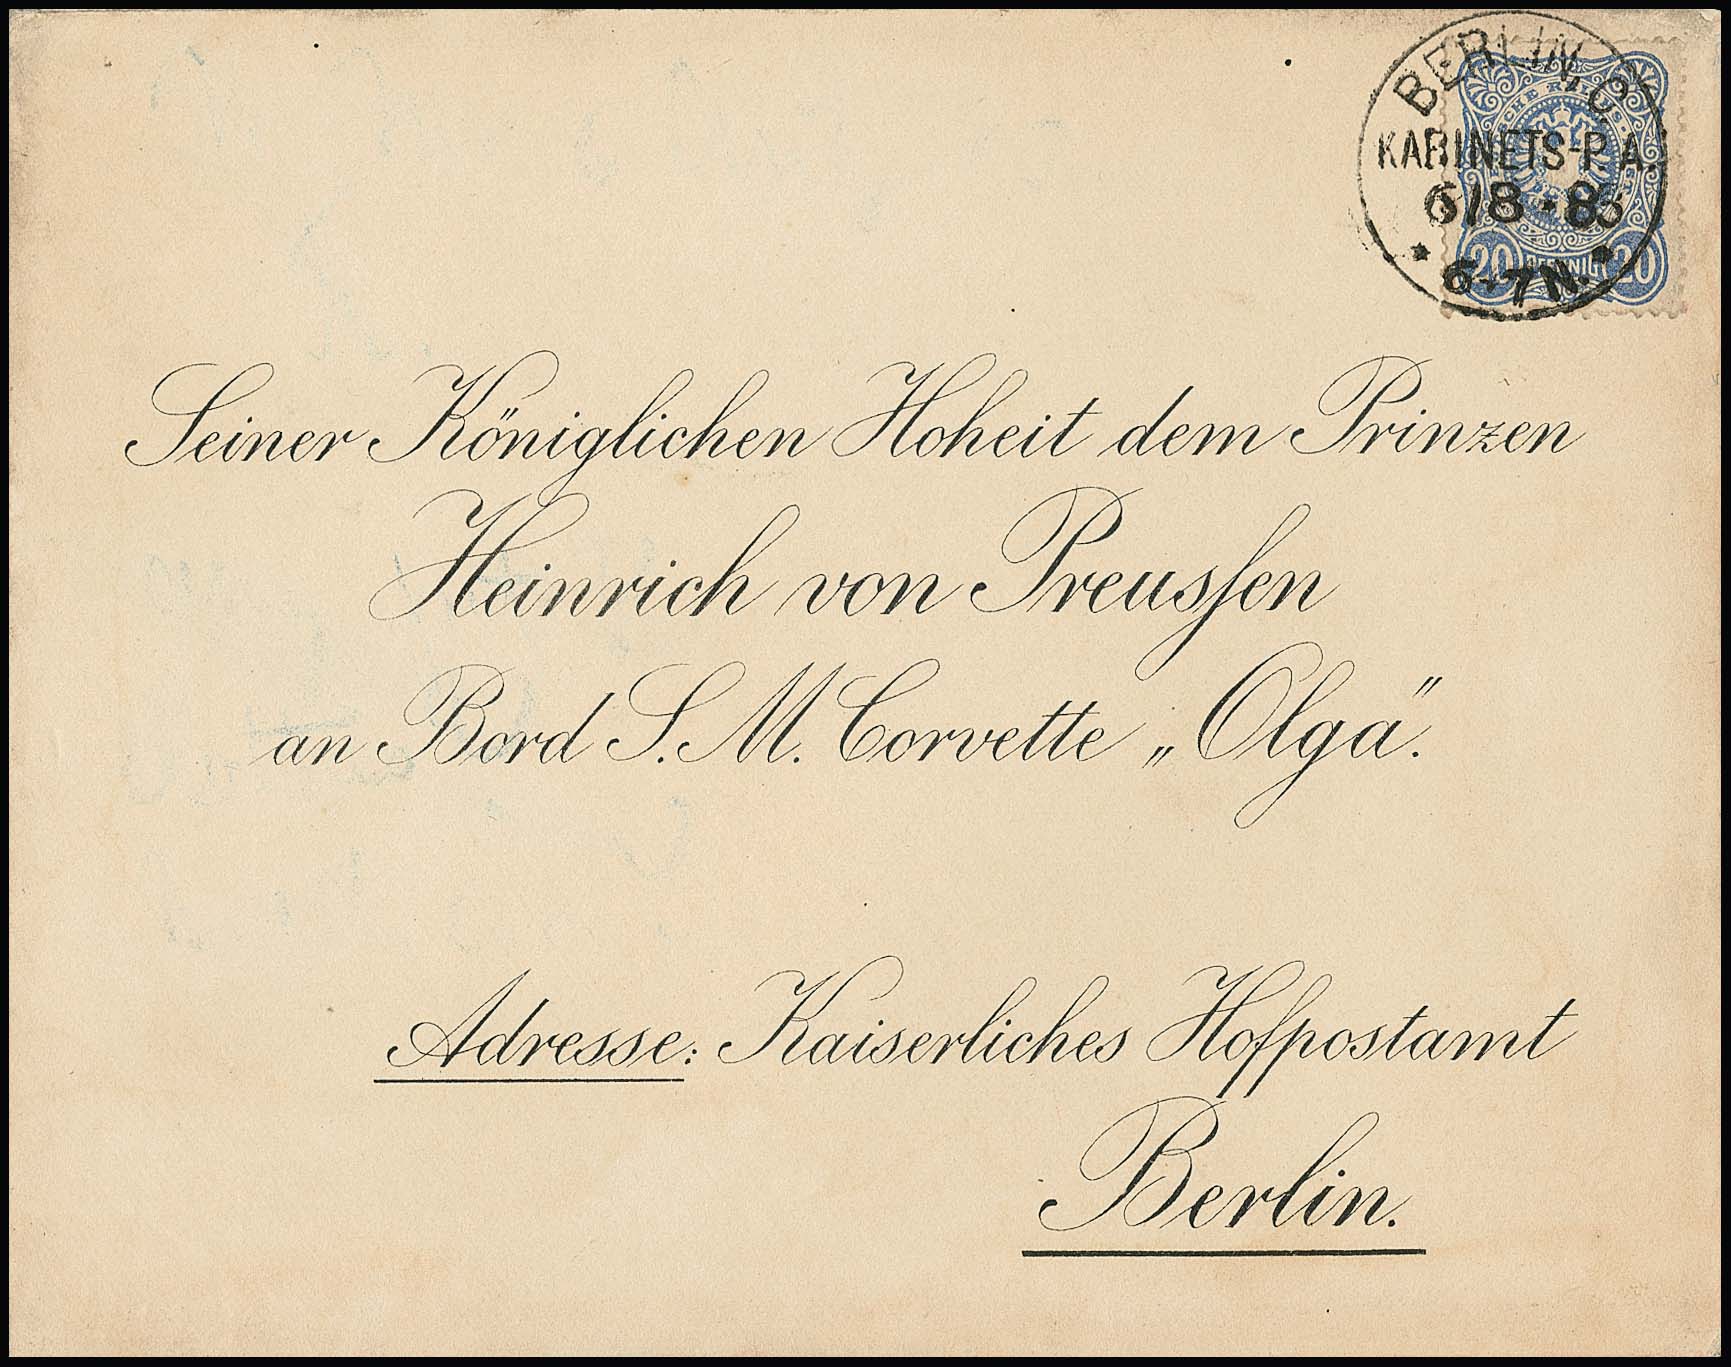 BERLIN, C
KABINETS-P.A.
6/8·8
* 6-7N. *
20 PFENNIG 20
Seiner Königlichen Hoheit dem Prinzen
Heinrich von Preusſen
an Bord S. M. Corvette „Olga“.
Adresse: Kaiserliches Hofpostamt
Berlin.